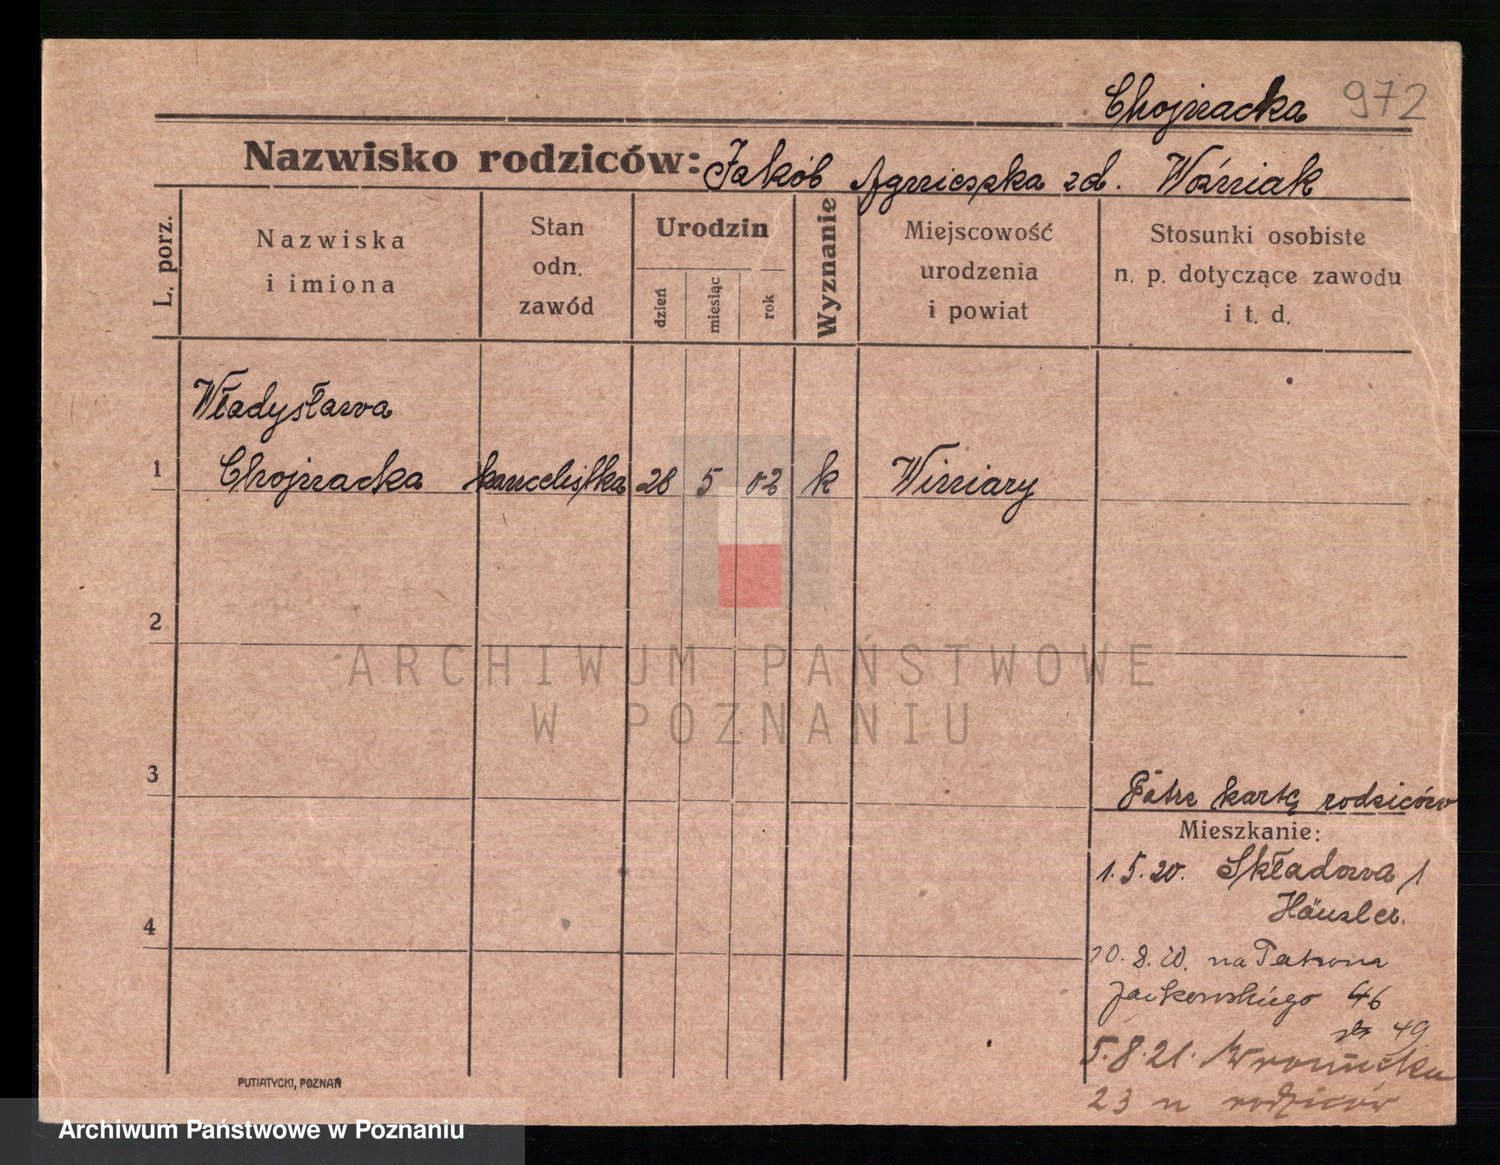 Chojnacka 972
Nazwisko rodziców: Jakób Agnieszka zd. Woźniak
L. porz.
Nazwiska
i imiona
Stan
odn.
zawód
Urodzin
dzień
miesiąc
rok
Wyznanie
Miejscowość
urodzenia
i powiat
Stosunki osobiste
n. p. dotyczące zawodu
i t. d.
Władysława
1 Chojnacka kancelistka 28 5 02 k Winiary
2
ARCHIWUM PAŃSTWOWE
W POZNANIU
3
Patrz kartę rodziców
Mieszkanie:
1.5.20. Składowa 1
Häusler.
4
10.8.20. na Patrona
Jackowskiego 46
49
5.8.21. Wroniecka
23 u rodziców
PUTIATYCKI, POZNAŃ
Archiwum Państwowe w Poznaniu